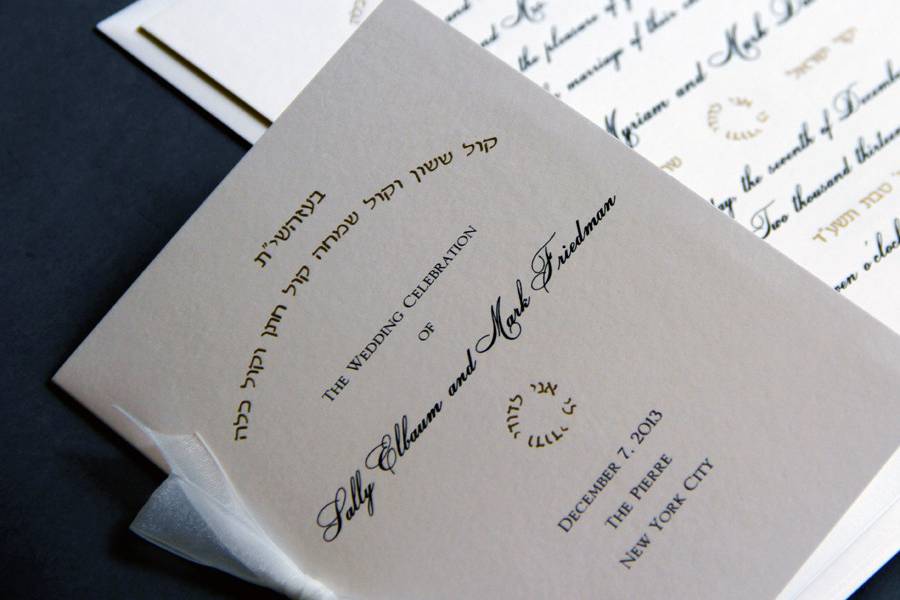 בעזהשי״ת
קול ששון וקול שמחה קול חתן וקול כלה
The Wedding Celebration
of
Sally Elbaum and Mark Friedman
אני לדודי ודודי לי
December 7, 2013
The Pierre
New York City
the pleasure of
marriage of their
Myriam and Mark
the seventh of December
Two thousand thirteen
טבת תשע״ד
o'clock